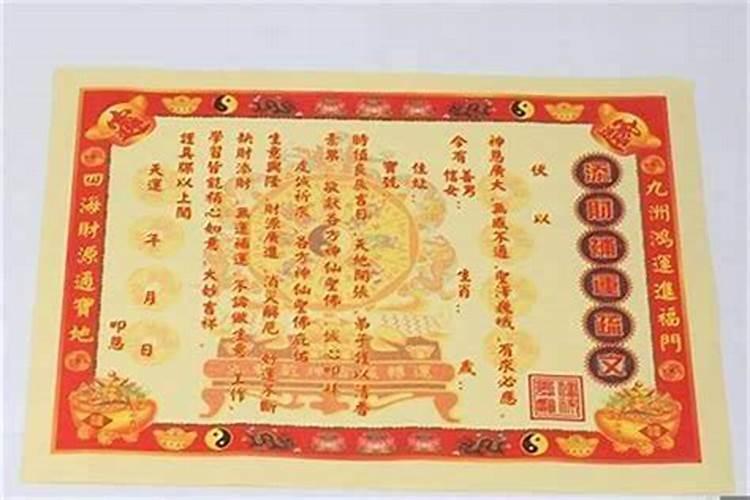 九洲鴻運進福門
添財補運疏文
伏以
神恩廣大 無感不通 聖澤巍峨 有求必應
今有善男 信女 生肖 歲
住址
寶號
時值良辰吉日 天地開張 弟子謹以清香
素果 敬獻各方神仙聖佛 誠心叩拜
虔誠祈求 各方神仙聖佛庇佑
生意興隆 財源廣進 消災解厄 好運不斷
缺財添財 無運補運 不論做生意 工作
學習皆能稱心如意 大妙吉祥
謹具疏以上聞
天運 年 月 日
叩懇
四海財源通寶地